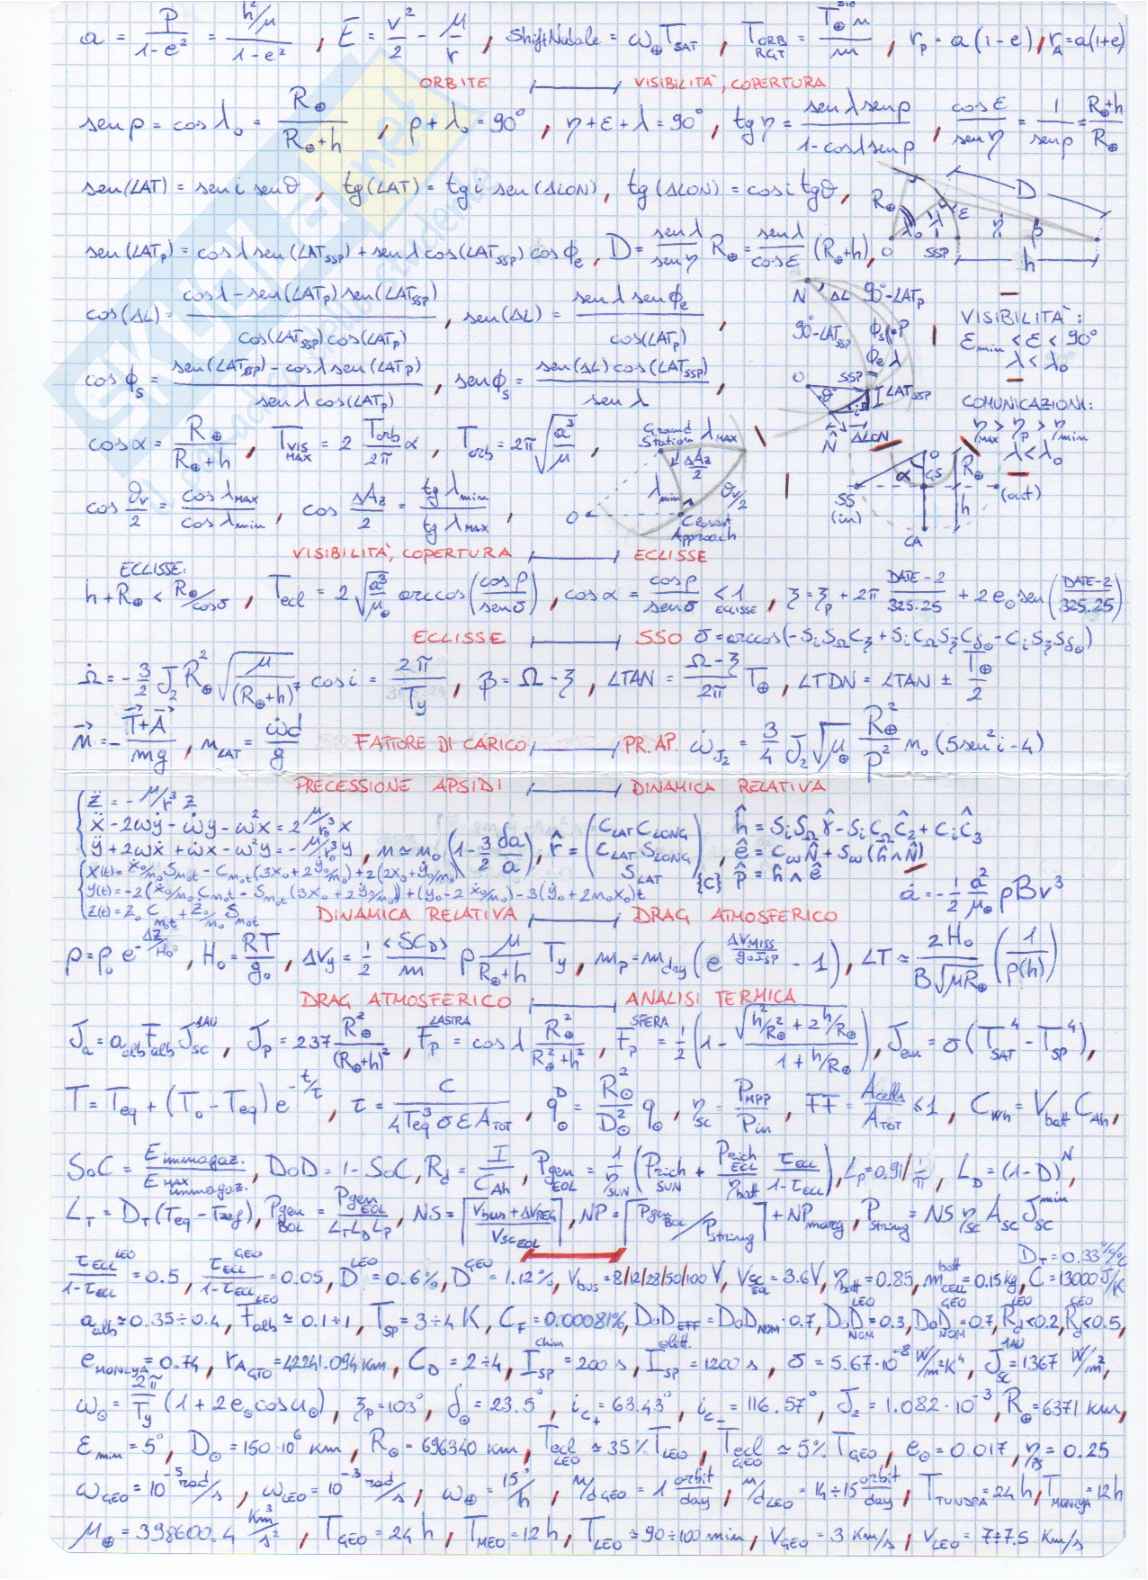 a = P/(1-e²) = (h²/μ)/(1-e²) , E = v²/2 - μ/r , ShiftNodale = ω⊕ T_SAT , T_ORB RGT = T⊕ n/m , r_P = a(1-e) , r_A = a(1+e)
ORBITE ⊢—⊣ VISIBILITA', COPERTURA
sen ρ = cos λ₀ = R⊕/(R⊕+h) , ρ + λ₀ = 90° , η + ε + λ = 90° , tg η = sen λ sen ρ/(1 - cos λ sen ρ) , cos ε/sen η = 1/sen ρ = (R⊕+h)/R⊕
sen(LAT) = sen i sen θ , tg(LAT) = tg i sen(ΔLON) , tg(ΔLON) = cos i tg θ ,
sen(LAT_P) = cos λ sen(LAT_SSP) + sen λ cos(LAT_SSP) cos ϕ_e , D = (sen λ/sen η) R⊕ = (sen λ/cos ε)(R⊕+h) ,
cos(ΔL) = (cos λ - sen(LAT_P) sen(LAT_SSP))/(cos(LAT_SSP) cos(LAT_P)) , sen(ΔL) = sen λ sen ϕ_e/cos(LAT_P) ,
cos ϕ_s = (sen(LAT_SSP) - cos λ sen(LAT_P))/(sen λ cos(LAT_P)) , sen ϕ_s = sen(ΔL) cos(LAT_SSP)/sen λ ,
cos α = R⊕/(R⊕+h) , T_VIS MAX = 2 (T_orb/2π) α , T_orb = 2π √(a³/μ) ,
cos θ_v/2 = cos λ_MAX/cos λ_min , cos ΔAz/2 = tg λ_min/tg λ_MAX ,
R⊕ λ₀ λ ε η ρ D
O SSP h
N ΔL 90°-LAT_P
90°-LAT_SSP ϕ_s P
ϕ_e λ
O SSP LAT_SSP
θ i
N̂ ΔLON
VISIBILITA':
ε_min < ε < 90°
λ < λ₀
COMUNICAZIONI:
η_MAX > η_P > η_min
λ < λ₀
Ground Station λ_MAX
ΔAz/2
λ_min θ_v/2
O Closest Approach
O α GS R⊕
SS (in) (out)
h
CA
VISIBILITA', COPERTURA ⊢—⊣ ECLISSE
ECLISSE:
h + R⊕ < R⊕/cos σ , T_ecl = 2 √(a³/μ⊕) arccos(cos ρ/sen σ) , cos α = cos ρ/sen σ < 1 ECLISSE , ξ = ξ_P + 2π (DATE-2)/325.25 + 2e₀ sen((DATE-2)/325.25)
ECLISSE ⊢—⊣ SSO σ = arccos(-S_i S_Ω C_ξ + S_i C_Ω S_ξ C_δ⊙ - C_i S_ξ S_δ⊙)
Ω̇ = -3/2 J₂ R⊕² √(μ/(R⊕+h)⁷) cos i = 2π/T_y , β = Ω - ξ , LTAN = ((Ω-ξ)/2π) T⊕ , LTDN = LTAN ± T⊕/2
n⃗ = -(T⃗+A⃗)/mg , n_LAT = ω̇d/g FATTORE DI CARICO ⊢—⊣ PR. AP. ω̇_J₂ = 3/4 J₂ √μ⊕ (R⊕²/P²) n₀ (5sen²i - 4)
PRECESSIONE APSIDI ⊢—⊣ DINAMICA RELATIVA
z̈ = -μ/r³ z
ẍ - 2ωẏ - ω̇y - ω²x = 2 μ/r₀³ x
ÿ + 2ωẋ + ω̇x - ω²y = -μ/r₀³ y , n ≃ n₀ (1 - 3/2 δa/a) , r̂ = (C_LAT C_LONG, C_LAT S_LONG, S_LAT){C}
ĥ = S_i S_Ω γ̂ - S_i C_Ω ĉ₂ + C_i ĉ₃
ê = C_ω N̂ + S_ω (ĥ ∧ N̂)
p̂ = ĥ ∧ ê
x(t) = ẋ₀/n₀ S_n₀t - C_n₀t (3x₀ + 2ẏ₀/n₀) + 2(2x₀ + ẏ₀/n₀)
y(t) = -2(ẋ₀/n₀ C_n₀t - S_n₀t (3x₀ + 2ẏ₀/n₀)) + (y₀ - 2ẋ₀/n₀) - 3(ẏ₀ + 2n₀x₀)t
z(t) = z₀ C_n₀t + ż₀/n₀ S_n₀t
ȧ = -1/2 a²/μ⊕ ρBv³
DINAMICA RELATIVA ⊢—⊣ DRAG ATMOSFERICO
ρ = ρ₀ e^(-Δz/H₀) , H₀ = RT/g₀ , ΔV_y = 1/2 (<SC_D>/m) ρ (μ/(R⊕+h)) T_y , m_p = m_dry (e^(ΔV_MISS/(g₀ I_SP)) - 1) , LT ≃ 2H₀/(B√(μR⊕)) (1/ρ(h))
DRAG ATMOSFERICO ⊢—⊣ ANALISI TERMICA
J_a = a_alb F_alb J_SC^1AU , J_P = 237 R⊕²/(R⊕+h)² , F_P^LASTRA = cos λ R⊕²/(R⊕²+h²) , F_P^SFERA = 1/2 (1 - √(h²/R⊕² + 2h/R⊕)/(1 + h/R⊕)) , J_em = σ(T_SAT⁴ - T_SP⁴) ,
T = T_eq + (T₀ - T_eq) e^(-t/τ) , τ = C/(4T_eq³ σ ε A_TOT) , q⊙^D = (R⊙²/D⊙²) q⊙ , η_SC = P_MPP/P_in , FF = A_cells/A_TOT ≤ 1 , C_Wh = V_batt C_Ah ,
SoC = E immagaz./E MAX immagaz. , DoD = 1 - SoC , R_d = I/C_Ah , P_gen EOL = 1/η_SUN (P_rich SUN + (P_rich ECL/η_batt) τ_ECL/(1-τ_ECL)) , L_P = 0.91/ , L_D = (1-D)^N ,
L_T = D_T (T_eq - T_ref) , P_gen BOL = P_gen EOL/(L_T L_D L_P) , NS = ⌈(V_bus + ΔV_REG)/V_SC EOL⌉ , NP = ⌈P_gen BOL/P_string⌉ + NP_marg , P_string = NS η_SC A_SC J_SC^min ,
D_T = 0.33 %/°C
τ_ECL/(1-τ_ECL) LEO = 0.5 , τ_ECL/(1-τ_ECL) GEO = 0.05 , D^LEO = 0.6% , D^GEO = 1.12% , V_bus = 8/12/28/50/100 V , V_cell = 3.6V , η_batt = 0.85 , m_cell^batt = 0.15 kg , C = 13000 J/K
a_alb ≃ 0.35÷0.4 , F_alb^LEO ≃ 0.1÷1 , T_SP = 3÷4 K , C_F = 0.00081% , DoD_EFF = DoD_NOM · 0.7 , DoD_NOM^LEO = 0.3 , DoD_NOM^GEO = 0.7 , R_d^LEO < 0.2 , R_d^GEO < 0.5 ,
e_MONLYA = 0.74 , r_A GTO = 42241.094 km , C_D = 2÷4 , I_SP^chim = 200 s , I_SP^elett. = 1200 s , σ = 5.67·10⁻⁸ W/m²K⁴ , J_SC^1AU = 1367 W/m² ,
ω⊙ = (2π/T_y)(1 + 2e⊙ cos u⊙) , ξ_P = 103° , δ⊙ = 23.5° , i_c+ = 63.43° , i_c- = 116.57° , J₂ = 1.082·10⁻³ , R⊕ = 6371 km ,
ε_min = 5° , D⊙ = 150·10⁶ km , R⊙ = 696340 km , T_ecl LEO ≃ 35% T_LEO , T_ecl GEO ≃ 5% T_GEO , e⊙ = 0.017 , η_PS = 0.25
ω_GEO = 10⁻⁵ rad/s , ω_LEO = 10⁻³ rad/s , ω⊕ = 15°/h , n/d GEO = 1 orbit/day , n/d LEO = 14÷15 orbit/day , T_TUNDRA = 24 h , T_MONLYA = 12 h
μ⊕ = 398600.4 km³/s² , T_GEO = 24 h , T_MEO = 12 h , T_LEO ≃ 90÷100 min , V_GEO = 3 Km/s , V_LEO = 7÷7.5 Km/s